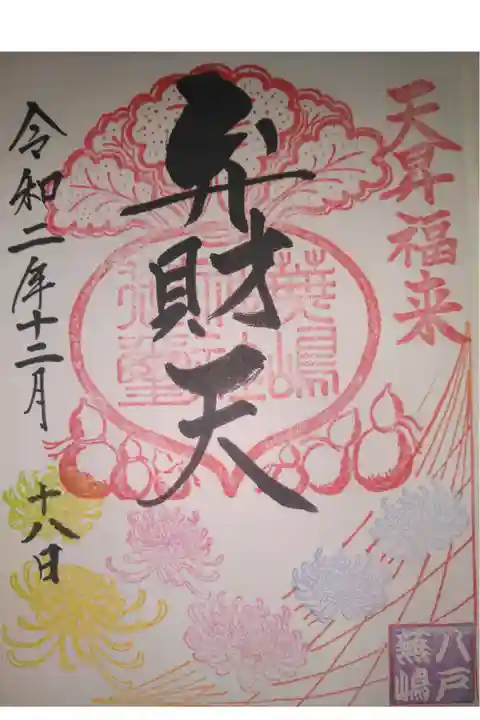 天昇福来
弁財天
蕪嶋
神社
令和二年十二月
十八日
八戸
蕪嶋